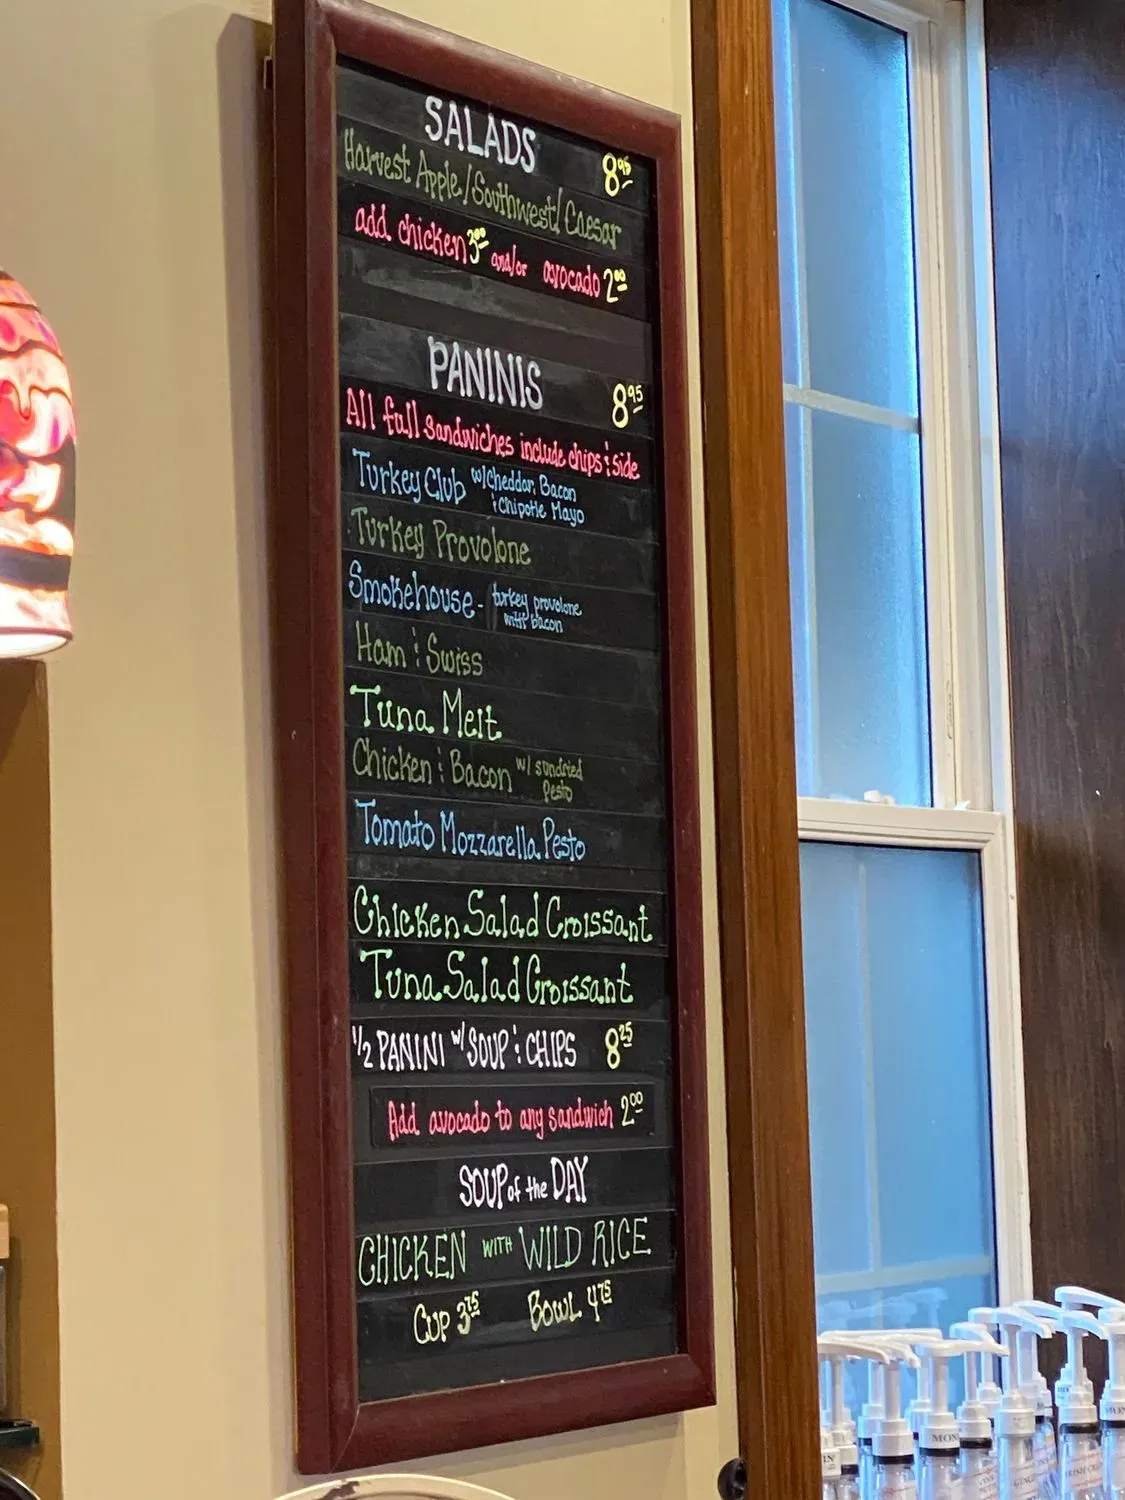 SALADS 8.95
Harvest Apple/Southwest/Caesar
add chicken 3.00 and/or avocado 2.00
PANINIS 8.95
All full sandwiches include chips & side
Turkey Club w/Cheddar, Bacon
& Chipotle Mayo
Turkey Provolone
Smokehouse - turkey provolone
with bacon
Ham & Swiss
Tuna Melt
Chicken & Bacon w/ sundried
Pesto
Tomato Mozzarella Pesto
Chicken Salad Croissant
Tuna Salad Croissant
1/2 PANINI w/ SOUP & CHIPS 8.25
Add avocado to any sandwich 2.00
SOUP of the DAY
CHICKEN WITH WILD RICE
CUP 3.75 BOWL 4.75